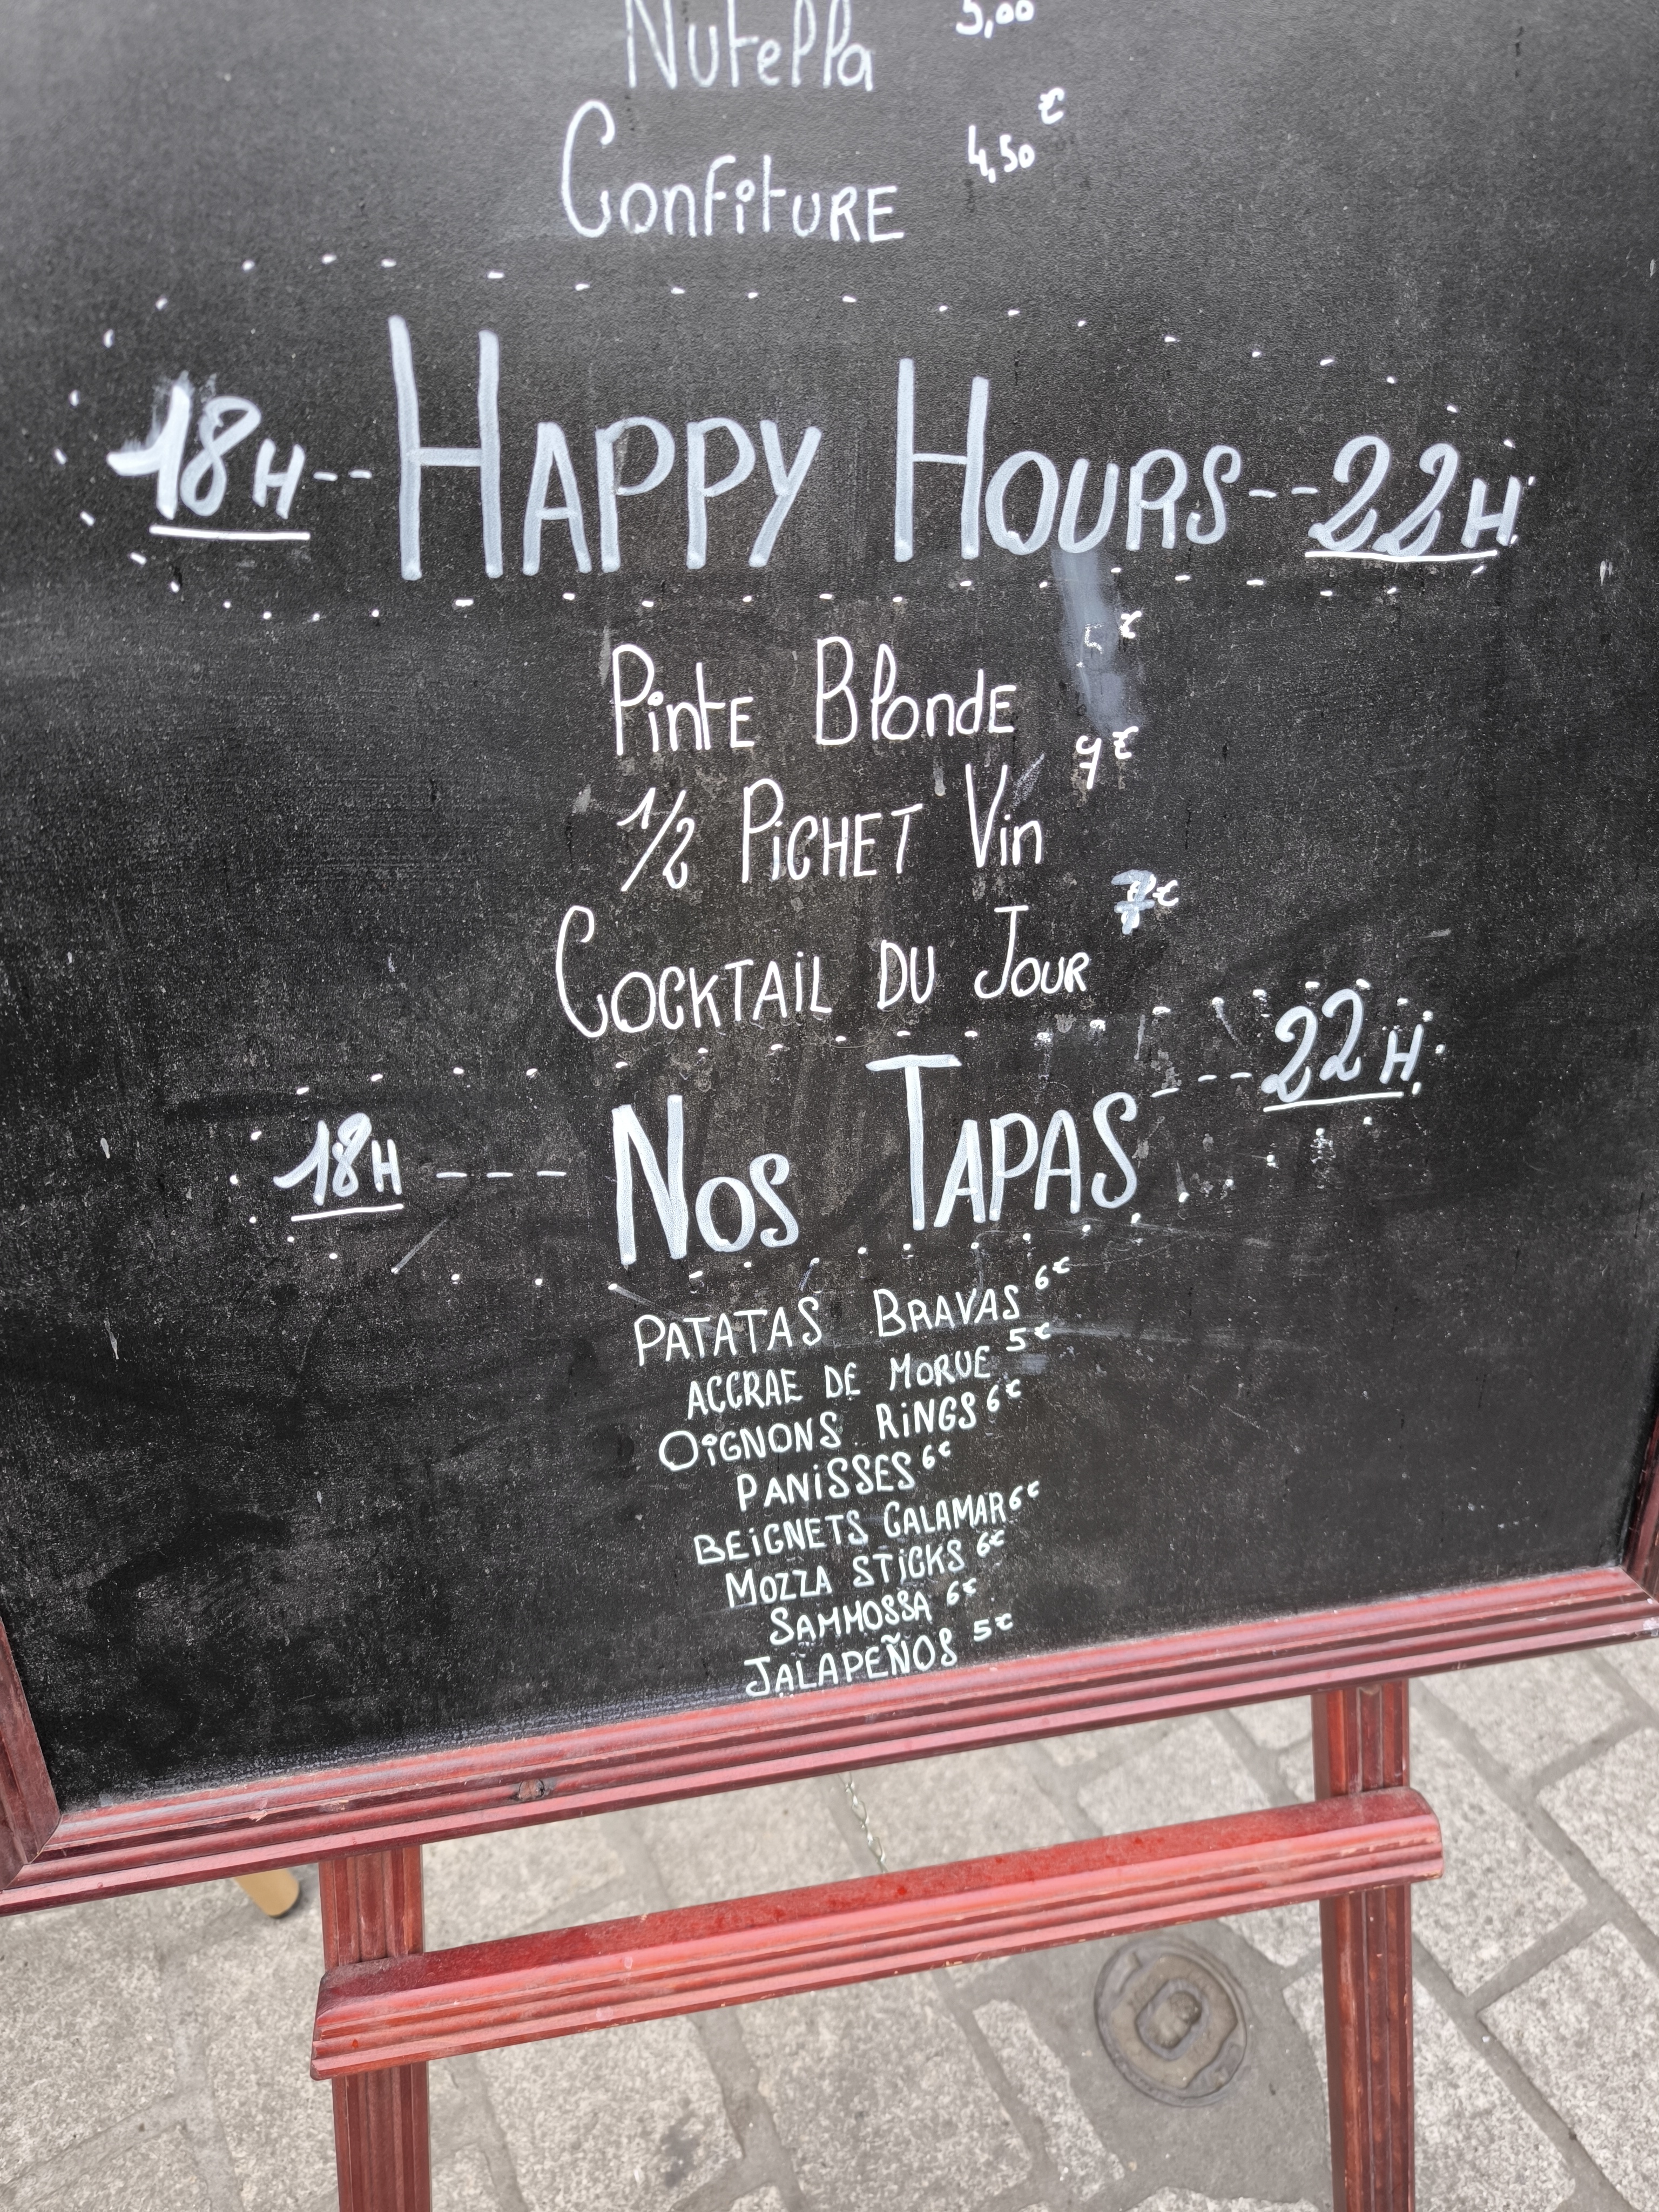 Nutella 5,00
Confiture 4,50 €
18H -- HAPPY HOURS -- 22H
Pinte Blonde €
1/2 PICHET Vin 9€
COCKTAIL DU JOUR 7€
18H --- NOS TAPAS --- 22H
PATATAS BRAVAS 6€
ACCRAE DE MORUE 5€
OIGNONS RINGS 6€
PANISSES 6€
BEIGNETS CALAMAR 6€
MOZZA STICKS 6€
SAMMOSSA 6€
JALAPEÑOS 5€